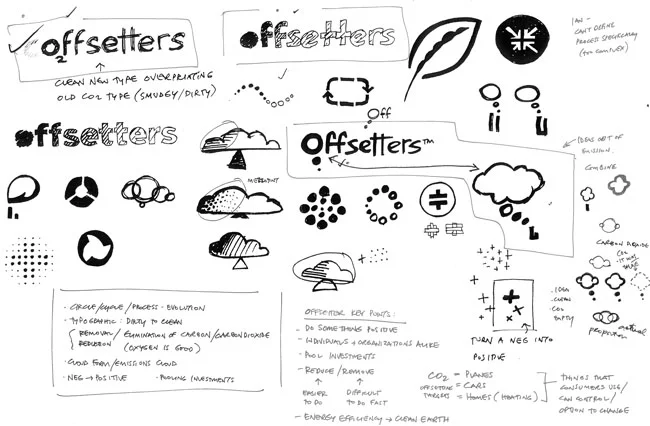 O2ffsetters
CLEAN NEW TYPE OVERPRINTING
OLD CO2 TYPE (SMUDGEY/DIRTY)
offsetters
IAN -
CAN'T DEFINE
PROCESS SPECIFICALLY
(TOO COMPLEX)
offsetters
off
Offsetters™
IDEAS OUT OF
EMISSION
COMBINE
CARBON DIOXIDE
CO2
natural
proportion
IDEA
CLEAN
CO2
EMPTY
TURN A NEG INTO
POSITIVE
- CIRCLE/CYCLE/PROCESS - EVOLUTION
- TYPOGRAPHIC: DIRTY TO CLEAN
REMOVAL/ELIMINATION OF CARBON/CARBON DIOXIDE
REDUCTION (OXYGEN IS GOOD)
- CLOUD FORM/EMISSIONS CLOUD
- NEG → POSITIVE - POOLING INVESTMENTS
OFFSETTER KEY POINTS:
- DO SOMETHING POSITIVE
- INDIVIDUALS + ORGANIZATIONS ALIKE
- POOL INVESTMENTS
- REDUCE/REMOVE
EASIER TO DO
DIFFICULT TO DO FAST
- ENERGY EFFICIENCY → CLEAN EARTH
CO2 = PLANES
OFFSETTERS = CARS
TARGETS = HOMES (HEATING)
THINGS THAT
CONSUMERS USE/
CAN CONTROL/
OPTION TO CHANGE